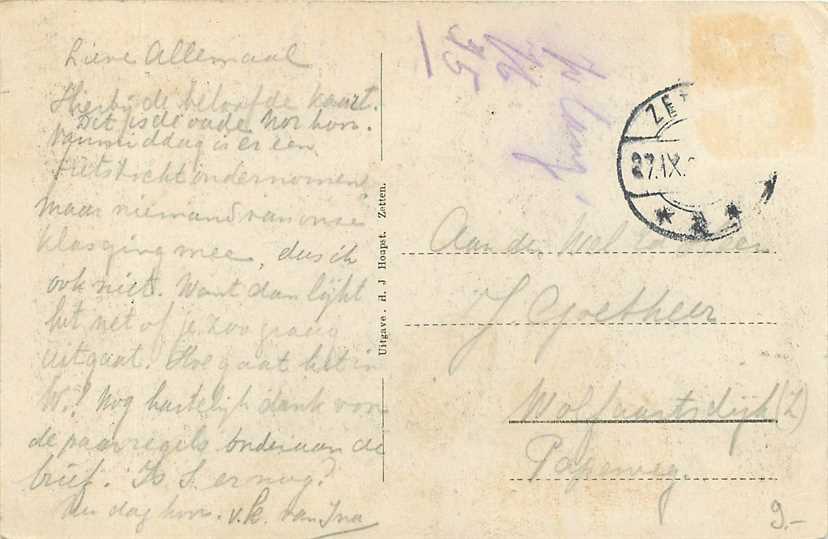 Lieve Allemaal
Hierbij de beloofde kaart.
Dit is de oude Nor hoor.
Vanmiddag is er een
fietstocht ondernomen
maar niemand van onze
klas ging mee, dus ik
ook niet. Want dan lijkt
het net of je zoo graag
uitgaat. Hoe gaat het in
W.? Nog hartelijk dank voor
de paar regels onderaan de
brief. Is S. er nog?
Nu dag hoor. v.k. van Ina
Uitgave. H. J Hoopst. Zetten.
75
ZET
27.IX.
Aan den Wel
J. Goetheer
Wolfaartsdijk (Z)
Papeweg.
9.-